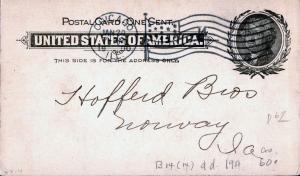 POSTAL CARD - ONE CENT.
UNITED STATES OF AMERICA.
THIS SIDE IS FOR THE ADDRESS ONLY.
CHICAGO
Hofferd Bros
Norway
Ia
B14(14) dd. 19A
60¢